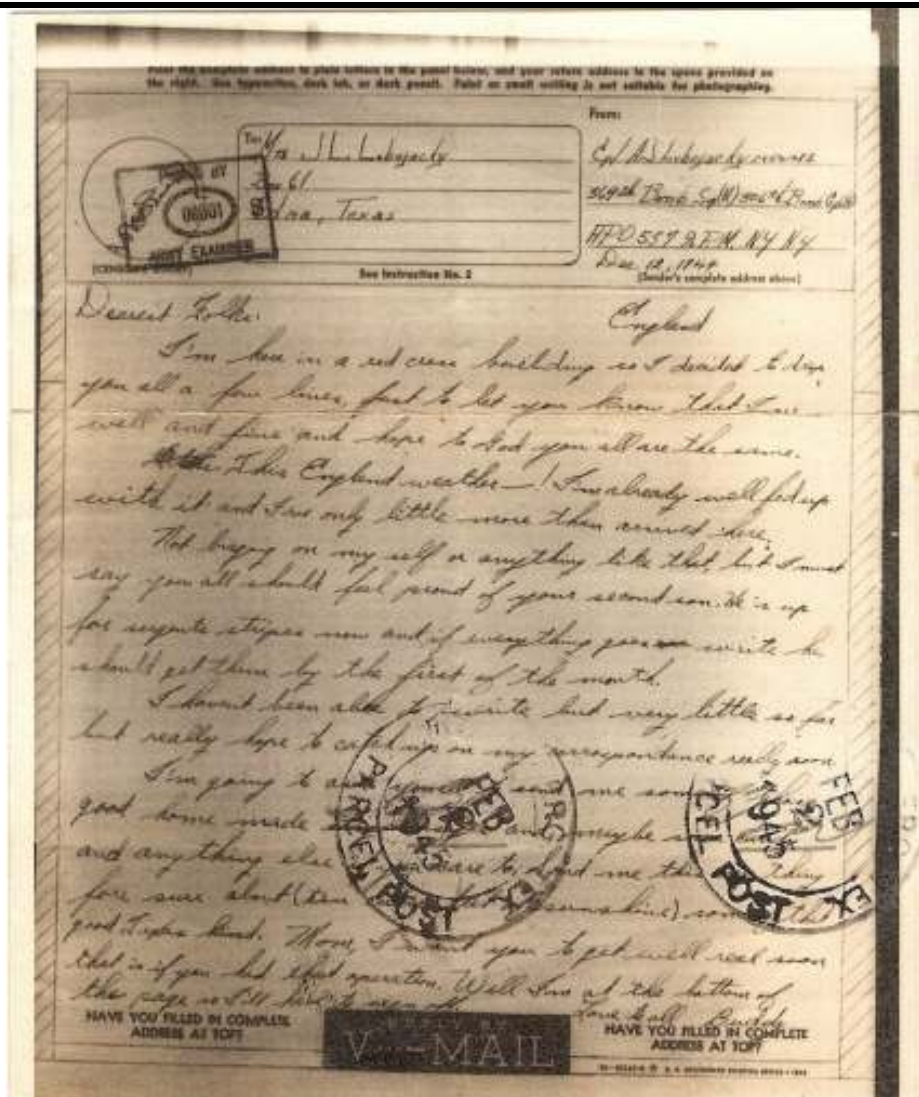 Print the complete address in plain letters in the panel below, and your return address in the space provided on
the right. Use typewriter, dark ink, or dark pencil. Faint or small writing is not suitable for photographing.
To:
From:
Texas
PASSED BY
06001
ARMY EXAMINER
APO 557 NY NY
Dec 12, 1944
See Instruction No. 2
(Sender's complete address above)
Dearest Folks:
England
I'm here in a red cross building so I decided to drop
you all a few lines, just to let you know that I'm
well and fine and hope to God you all are the same.
This England weather—! I'm already well fed up
with it and I've only little more than arrived here.
Not braging on my self or anything like that, but I must
say you all should feel proud of your second son. He is up
for sergents stripes now and if everything goes write he
should get them by the first of the month.
I havent been able to write but very little so far
but really hope to catch up on my correspondance really soon
I'm going to send me some
good home made and maybe
and anything else care to. Send me thing
fore sure (sunshine) some that
good Texas kind. Mom, I want you to get well real soon
that is if you had that operation. Well I'm at the bottom of
the page so I'll have to sign off.
Love to all
HAVE YOU FILLED IN COMPLETE
ADDRESS AT TOP?
V-MAIL
HAVE YOU FILLED IN COMPLETE
ADDRESS AT TOP?
PARCEL POST
FEB
2
1945
CEL POST
FEB
2
1945